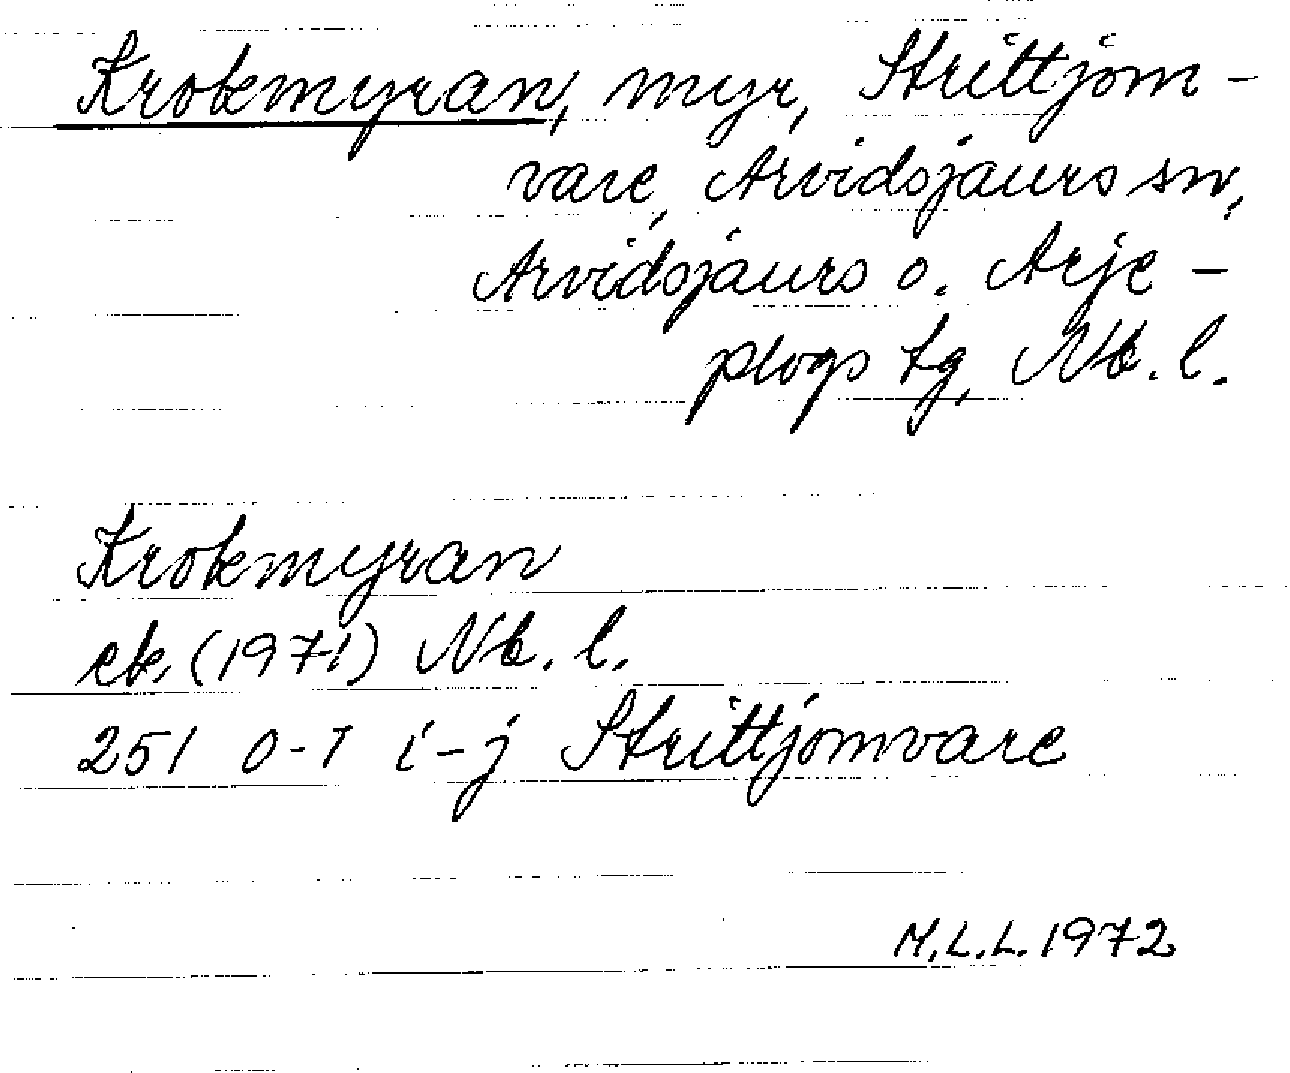 Krokmyran, myr, Strittjom-
vare, Arvidsjaurs sn,
Arvidsjaurs o. Arje-
plogs tg, Nb. l.
Krokmyran
ek. (1971) Nb. l.
251 0-1 i-j Strittjomvare
M.L.L. 1972